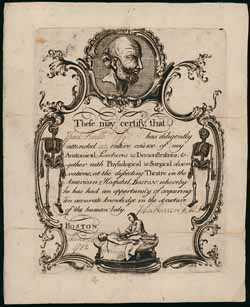 These may certify, that
has diligently
attended an entire course of my
Anatomical Lectures & Demonstrations; to-
gether with Physiological & Surgical obser-
vations, at the dissecting Theatre in the
American Hospital, Boston; whereby
he has had an opportunity of acquiring
an accurate knowledge in the structure
of the human body.
BOSTON